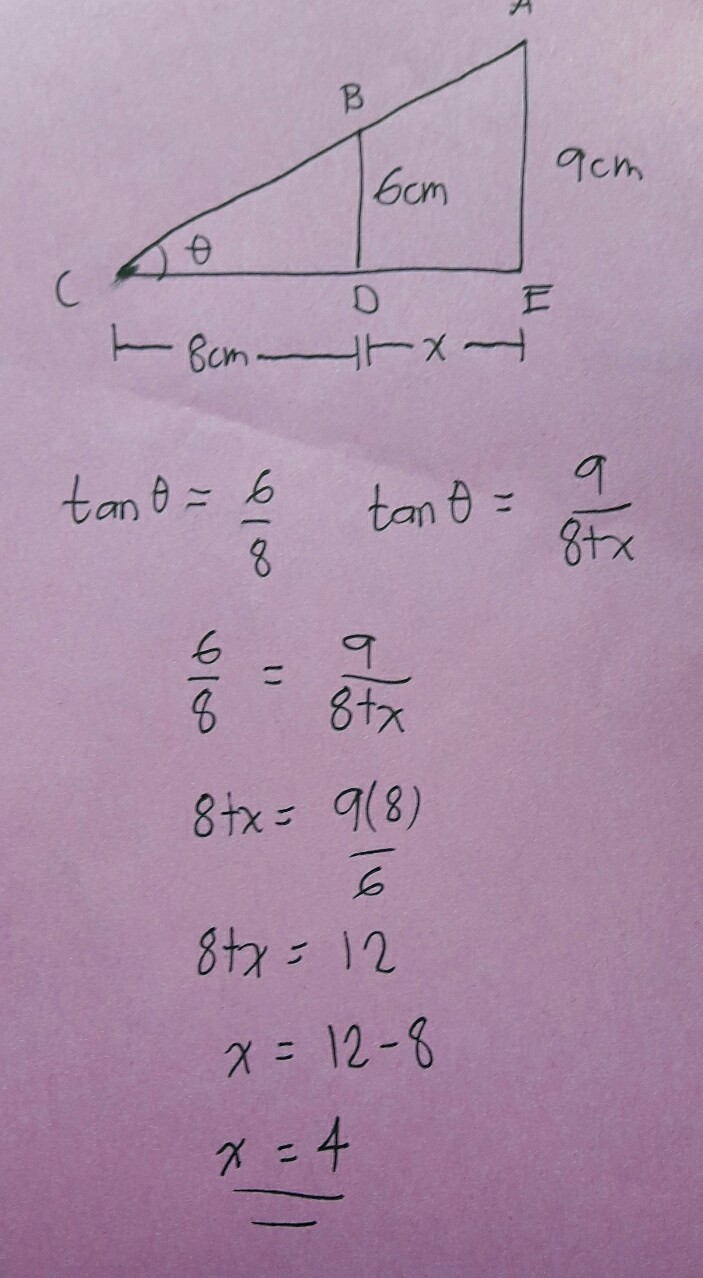 A
B
9cm
6cm
θ
C
D
E
8cm
x
tan θ = 6/8 tan θ = 9/8+x
6/8 = 9/8+x
8+x = 9(8)/6
8+x = 12
x = 12-8
x = 4